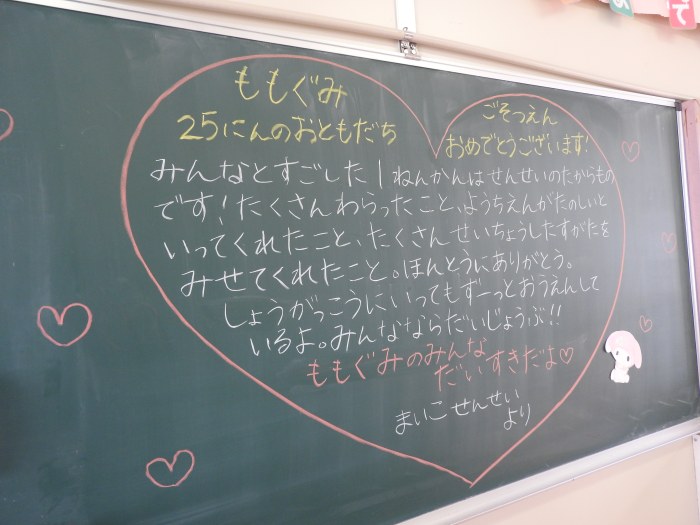 ももぐみ
25にんのおともだち
ごそつえん
おめでとうございます!
みんなとすごした1ねんかんはせんせいのたからもの
です!たくさんわらったこと、ようちえんがたのしいと
いってくれたこと、たくさんせいちょうしたすがたを
みせてくれたこと。ほんとうにありがとう。
しょうがっこうにいってもずーっとおうえんして
いるよ。みんなならだいじょうぶ!!
ももぐみのみんな
だいすきだよ♡
まいこせんせい
より